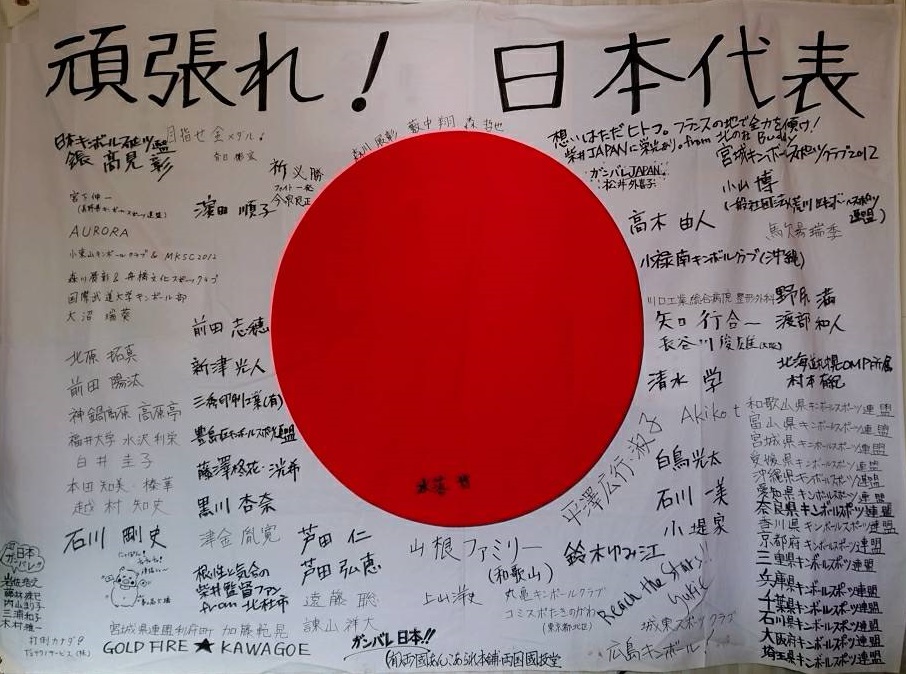 頑張れ! 日本代表
日本キンボールスポーツ連盟
目指せ金メダル!
森 哲也
藪中 翔
祈 必勝
ファイト一発
今泉良正
濱田 順子
宮下伸一
AURORA
小東山キンボールクラブ & MKSC2012
国際武道大学キンボール部
大沼 瑞葵
前田 志穂
北原 拓真
前田 陽汰
神鍋高原 高原亭
福井大学 水沢 利栄
白井 圭子
本田知美・榛華
越村 知史
石川 剛史
新津 光人
三秀印刷工業(有)
豊島区キンボールスポーツ連盟
藤澤格花・洸希
黒川 杏奈
津金 胤寛
根性と気合の
柴井監督ファン
from 北杜市
芦田 仁
芦田 弘恵
遠藤 聡
諫山 祥大
日本
ガンバレ
三浦 和子
木村 雄一
打倒カナダ!
宮城県連盟利府町 加藤範晃
GOLD FIRE ★ KAWAGOE
ガンバレ日本!!
(有)両国あんこあられ本舗 両国國技堂
山根ファミリー
(和歌山)
上山洋史
丸亀キンボールクラブ
コミスポたきのがわ
(東京都北区)
鈴木ゆみ江
平澤広行・淑子
Reach the Stars!!
Yukie
城東スポーツクラブ
広島キンボール!
想いはただヒトつ。フランスの地で全力を傾け!
柴井JAPANに栄光あり。from 北の和 Buddy
ガンバレJAPAN
松井外喜子
宮城キンボールスポーツクラブ2012
小山 博
(一般社団法人荒川区キンボールスポーツ
連盟)
馬欠場瑞季
高木 由人
小禄南キンボールクラブ(沖縄)
川口工業総合病院 整形外科
野尻 満
矢口 行合一
渡部和人
長谷川俊雄(大阪)
清水 学
Akiko t
白鳥光太
石川 一美
小堤家
和歌山県キンボールスポーツ連盟
富山県キンボールスポーツ連盟
宮城県キンボールスポーツ連盟
愛媛県キンボールスポーツ連盟
沖縄県キンボールスポーツ連盟
愛知県キンボールスポーツ連盟
奈良県キンボールスポーツ連盟
香川県キンボールスポーツ連盟
京都府キンボールスポーツ連盟
三重県キンボールスポーツ連盟
兵庫県キンボールスポーツ連盟
千葉県キンボールスポーツ連盟
石川県キンボールスポーツ連盟
大阪府キンボールスポーツ連盟
埼玉県キンボールスポーツ連盟